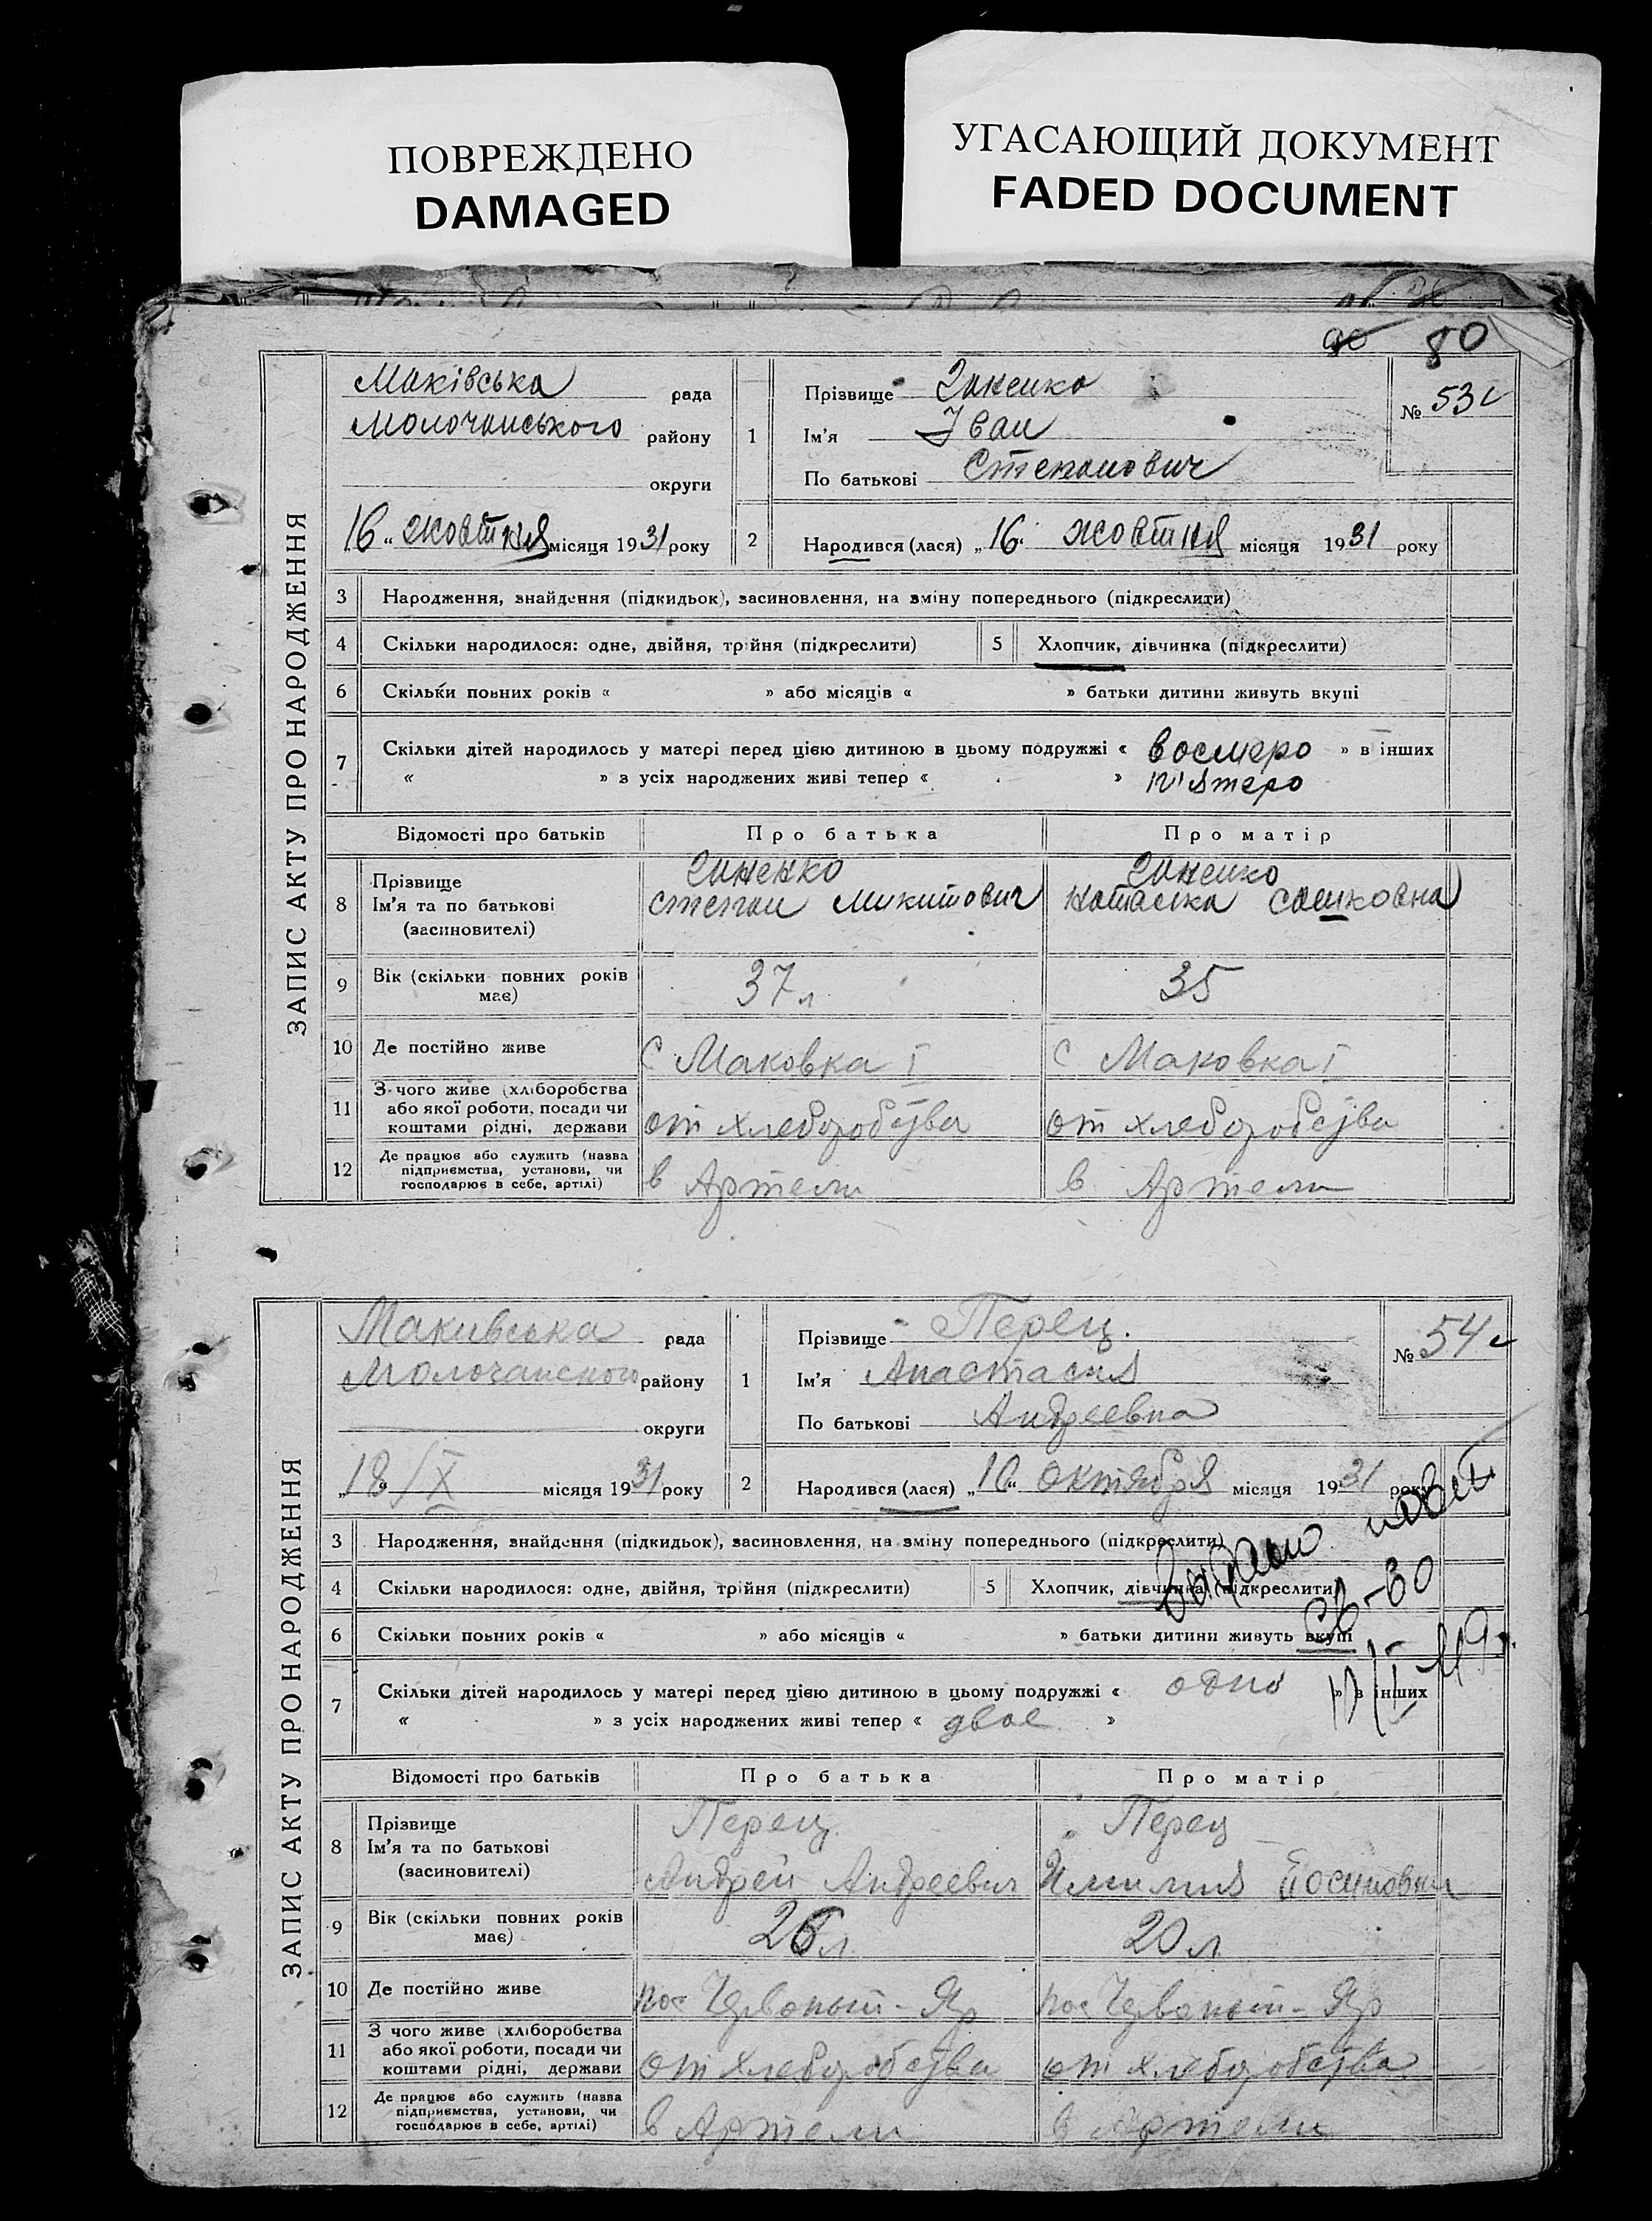 ПОВРЕЖДЕНО
DAMAGED
УГАСАЮЩИЙ ДОКУМЕНТ
FADED DOCUMENT
80
ЗАПИС АКТУ ПРО НАРОДЖЕННЯ
Маківська рада
Молочанського району
округи
16 " жовтня місяця 1931 року
1
Прізвище Зиненко
Ім'я Іван
По батькові Степанович
№ 53
2 Народився (лася) „16" жовтня місяця 1931 року
3 Народження, знайдення (підкидьок), засиновлення, на зміну попереднього (підкреслити)
4 Скільки народилося: одне, двійня, трійня (підкреслити) 5 Хлопчик, дівчинка (підкреслити)
6 Скільки повних років « » або місяців « » батьки дитини живуть вкупі
7 Скільки дітей народилось у матері перед цією дитиною в цьому подружжі « восмеро » в інших
« » з усіх народжених живі тепер « » п'ятеро
Відомості про батьків Про батька Про матір
8 Прізвище Ім'я та по батькові (засиновителі)
Зиненко Степан Микитович
Зиненко Наталка
9 Вік (скільки повних років має) 37 л 35
10 Де постійно живе С Маковка I с Маковка I
11 З чого живе (хліборобства або якої роботи, посади чи коштами рідні, держави
от хлеборобства от хлеборобства
12 Де працює або служить (назва підприємства, установи, чи господарює в себе, артілі)
в Артели в Артели
ЗАПИС АКТУ ПРО НАРОДЖЕННЯ
Макивська рада
Молочанского району
округи
„18"/X місяця 1931 року
1
Прізвище Перец.
Ім'я Анастасия
По батькові Андреевна
№ 54
2 Народився (лася) „16" октября місяця 1931 року
3 Народження, знайдення (підкидьок), засиновлення, на зміну попереднього (підкреслити)
4 Скільки народилося: одне, двійня, трійня (підкреслити) 5 Хлопчик, дівчинка (підкреслити)
6 Скільки повних років « » або місяців « » батьки дитини живуть вкупі
7 Скільки дітей народилось у матері перед цією дитиною в цьому подружжі « одно » в інших
« » з усіх народжених живі тепер « двое »
Відомості про батьків Про батька Про матір
8 Прізвище Ім'я та по батькові (засиновителі)
Перец Андрей Андреевич
Перец
9 Вік (скільки повних років має) 26 л 20 л
10 Де постійно живе пос Червоный-Яр пос Червоный-Яр
11 З чого живе (хліборобства або якої роботи, посади чи коштами рідні, держави
от хлеборобства от хлеборобства
12 Де працює або служить (назва підприємства, установи, чи господарює в себе, артілі)
в Артели в Артели